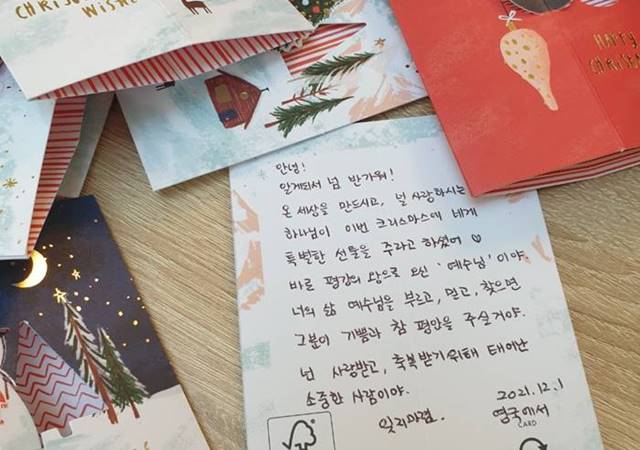 CHRISTMAS
WISHES
HAPPY
CHRISTMAS
안녕!
알게되서 넘 반가워!
온 세상을 만드시고, 널 사랑하시는
하나님이 이번 크리스마스에 네게
특별한 선물을 주라고 하셨어 ♡
바로 평강의 왕으로 오신 '예수님' 이야.
너의 삶 예수님을 부르고, 믿고, 찾으면
그분이 기쁨과 참 평안을 주실거야.
넌 사랑받고, 축복받기위해 태어난
소중한 사람이야.
잊지마렴.
2021.12.1
영국에서
CARD